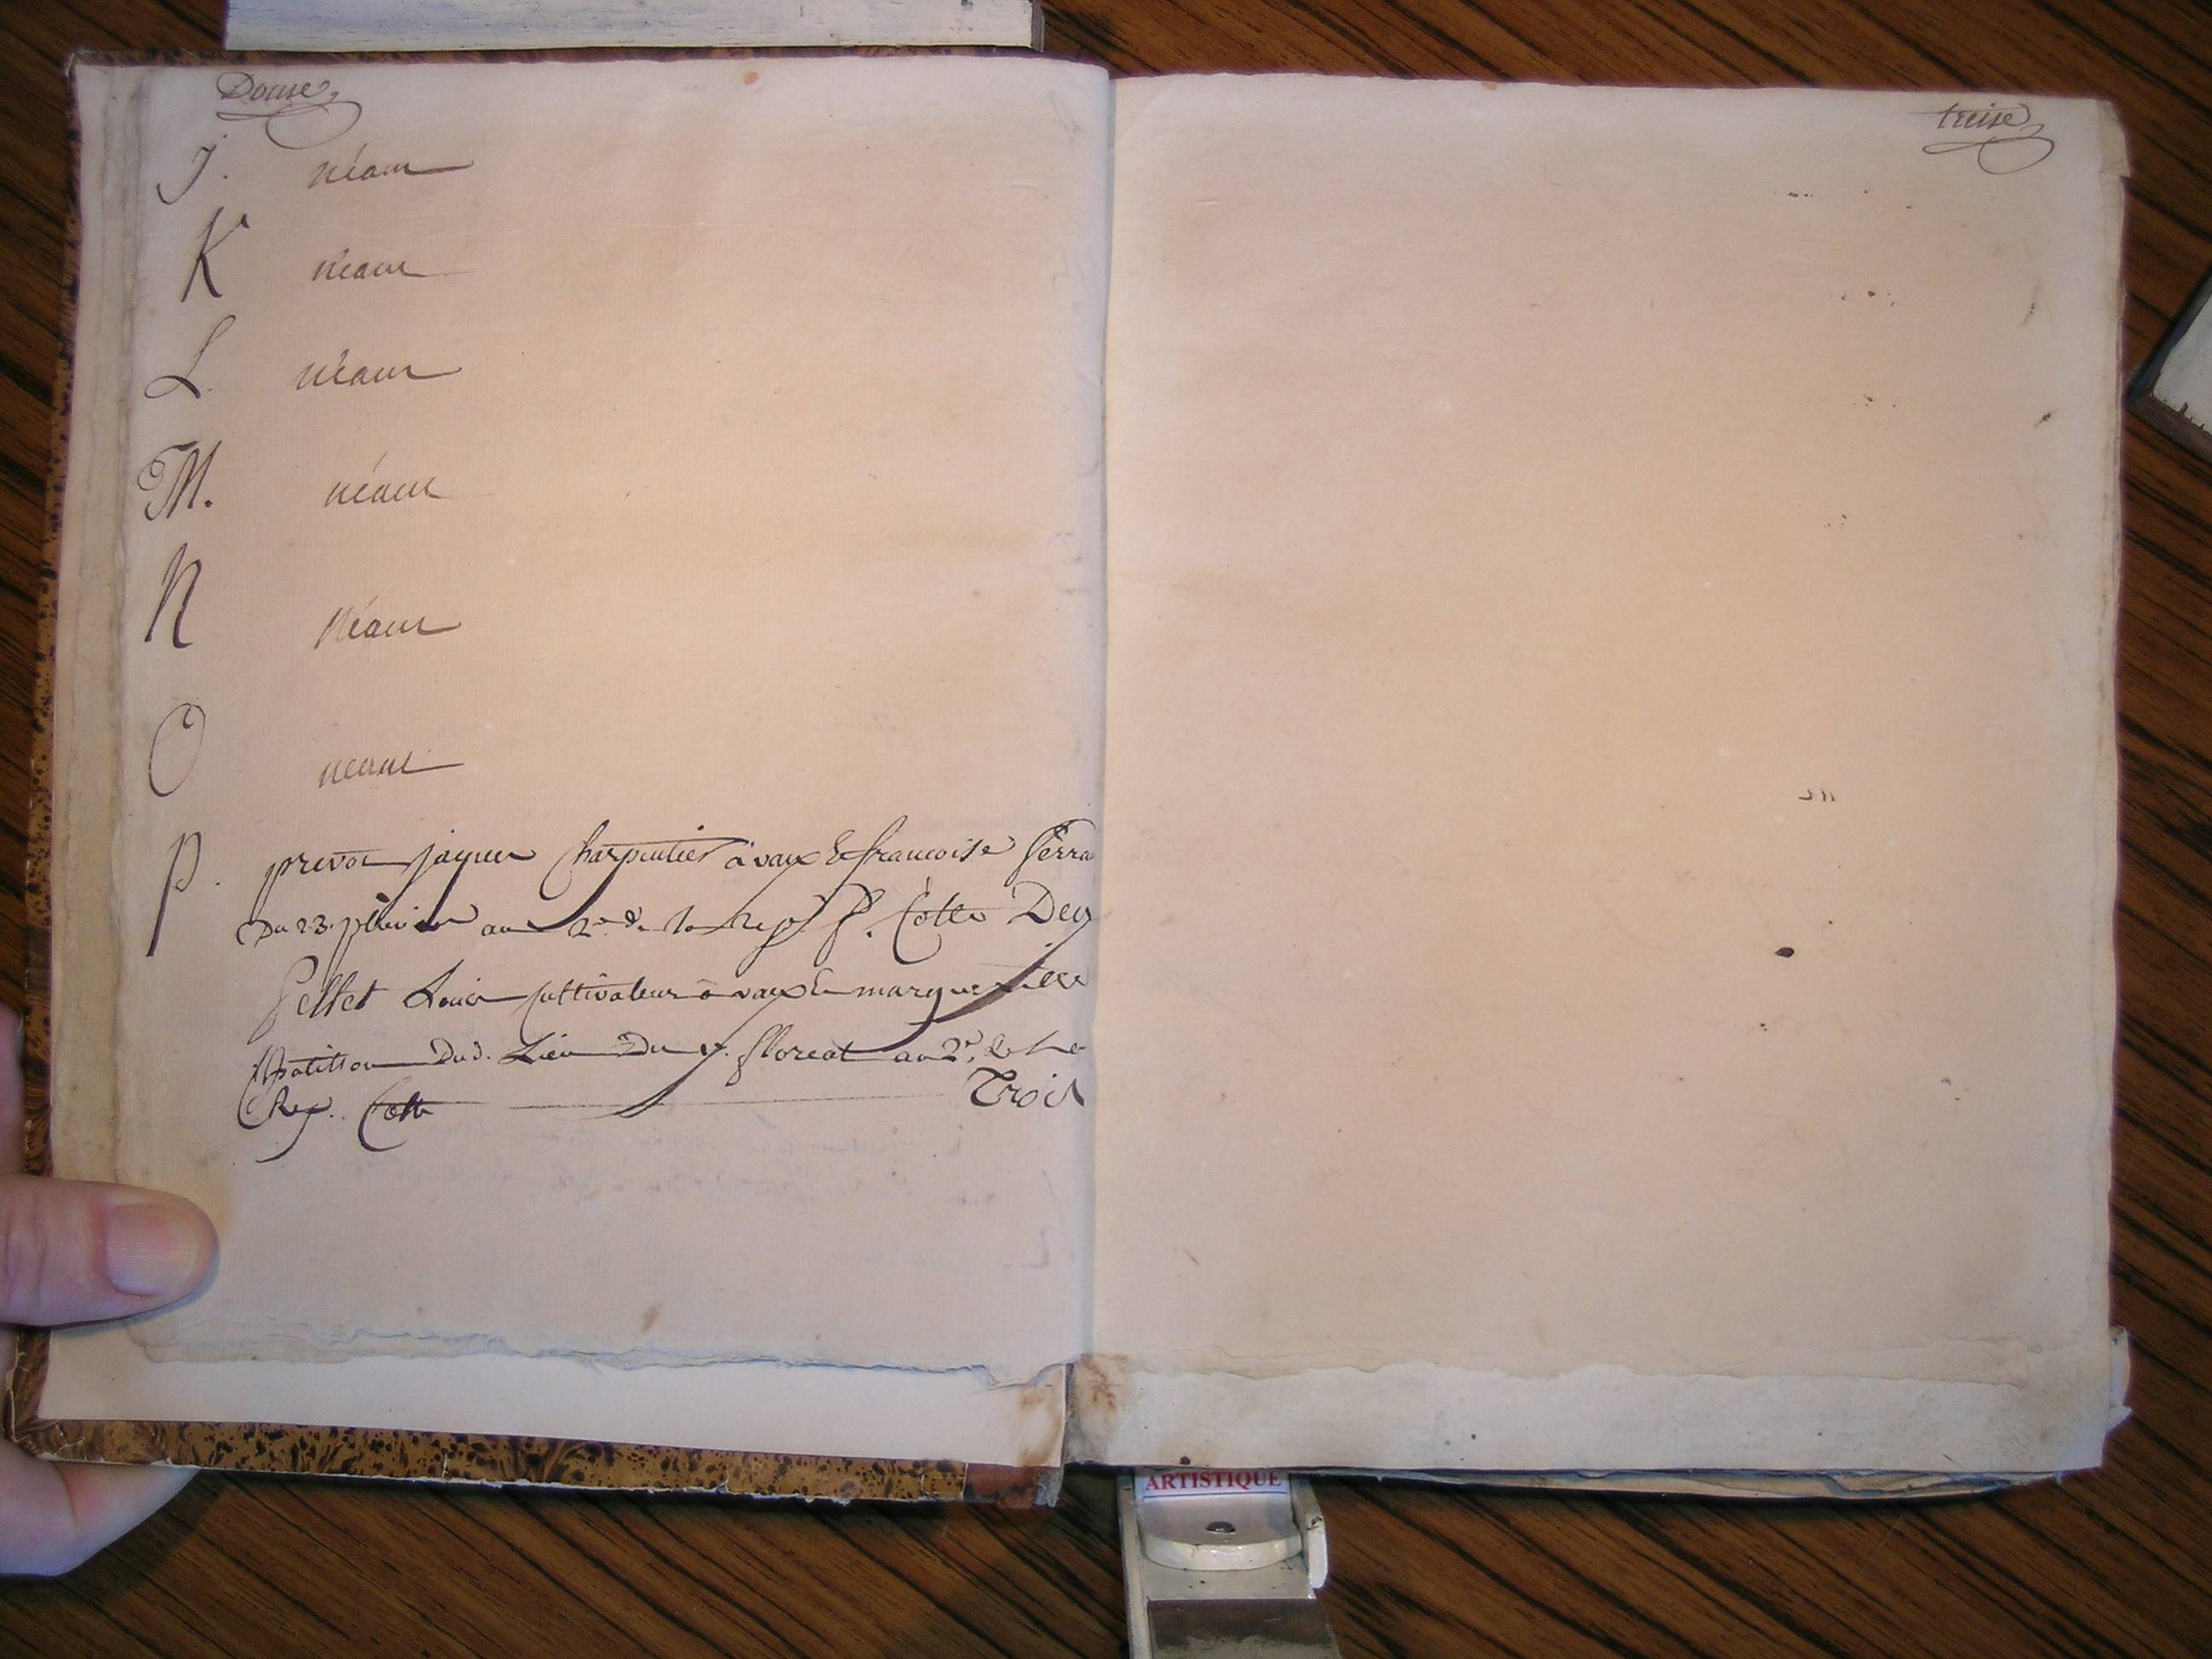 Douse
J. néant
K néant
L. néant
M. néant
N Néant
O néant
P. prevot jaques Charpentier à vaux & francoise Ferra
Du 23. pluviose an 2e. de la rep. f. Cotte Deux
Pellet Louis Cultivateur à vaux &
Dud. Lieu Du floreal an 2e. de la
Rep. Cotte Trois
treise
ARTISTIQUE